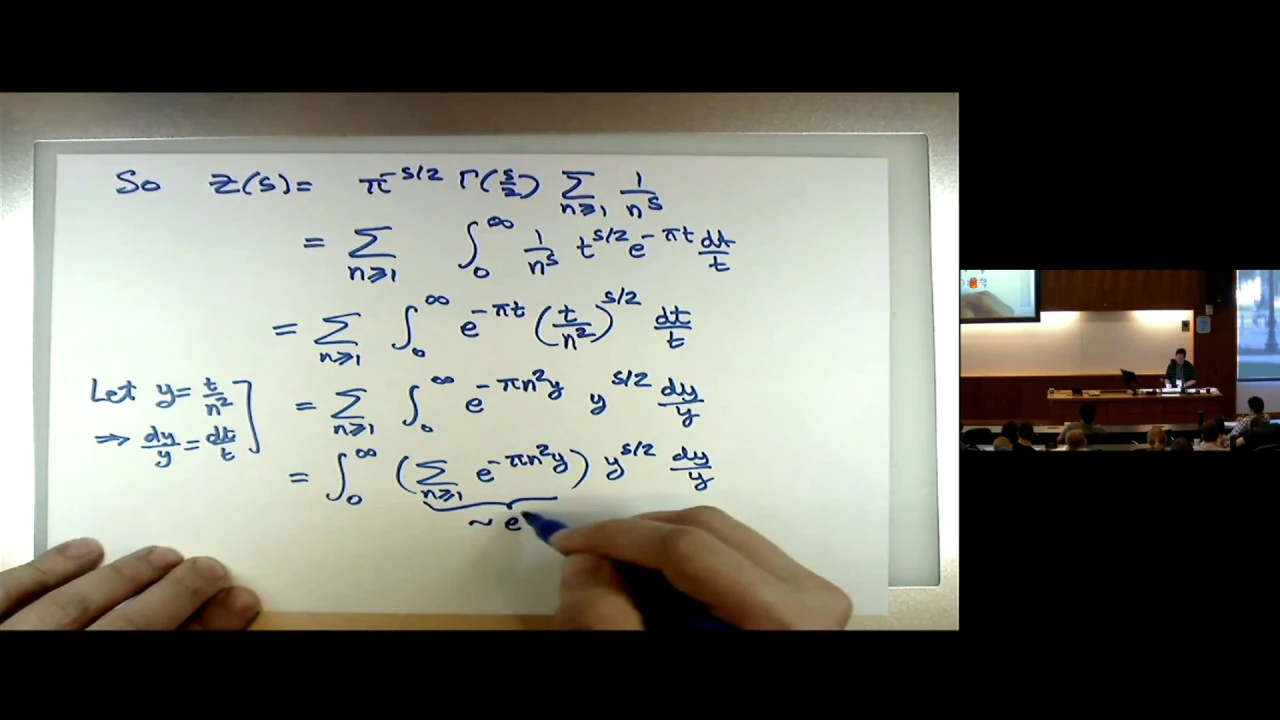 So Z(s) = π^{-s/2} Γ(s/2) ∑_{n≥1} 1/n^s
= ∑_{n≥1} ∫_0^∞ 1/n^s t^{s/2} e^{-πt} dt/t
= ∑_{n≥1} ∫_0^∞ e^{-πt} (t/n^2)^{s/2} dt/t
Let y = t/n^2
⇒ dy/y = dt/t
= ∑_{n≥1} ∫_0^∞ e^{-πn^2y} y^{s/2} dy/y
= ∫_0^∞ (∑_{n≥1} e^{-πn^2y}) y^{s/2} dy/y
~ e